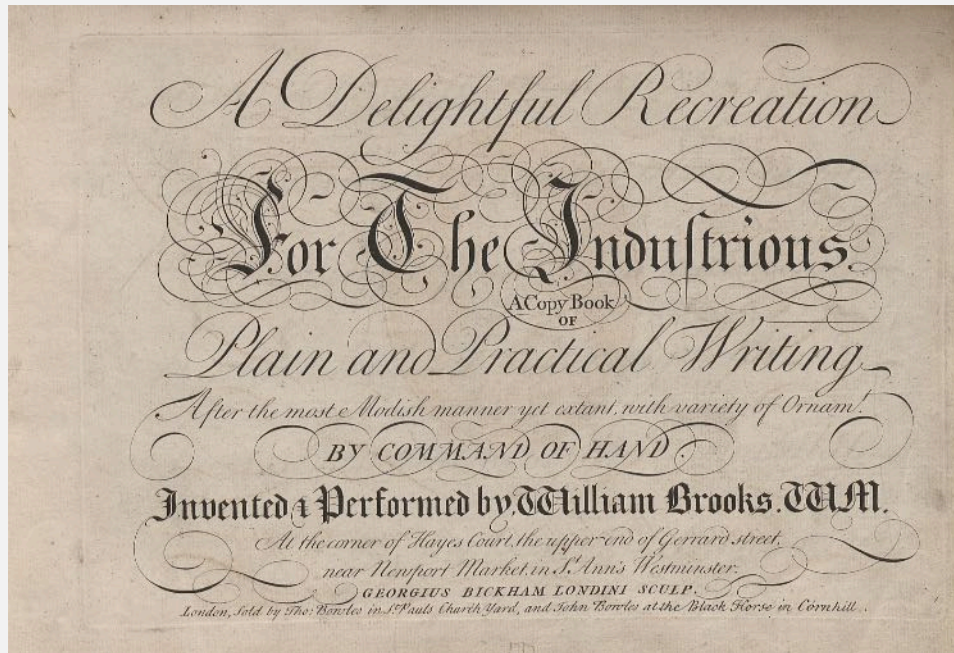 A Delightful Recreation
For The Induſtrious.
A Copy Book
OF
Plain and Practical Writing
After the most Modish manner yet extant, with variety of Ornam.t
BY COMMAND OF HAND.
Invented & Performed by William Brooks. W.M.
At the corner of Hayes Court, the upper-end of Gerrard street,
near Newport Market, in St. Ann's Westminster.
GEORGIUS BICKHAM LONDINI SCULP.
London, Sold by Tho: Bowles in St. Pauls Church Yard, and John Bowles at the Black Horse in Cornhill.